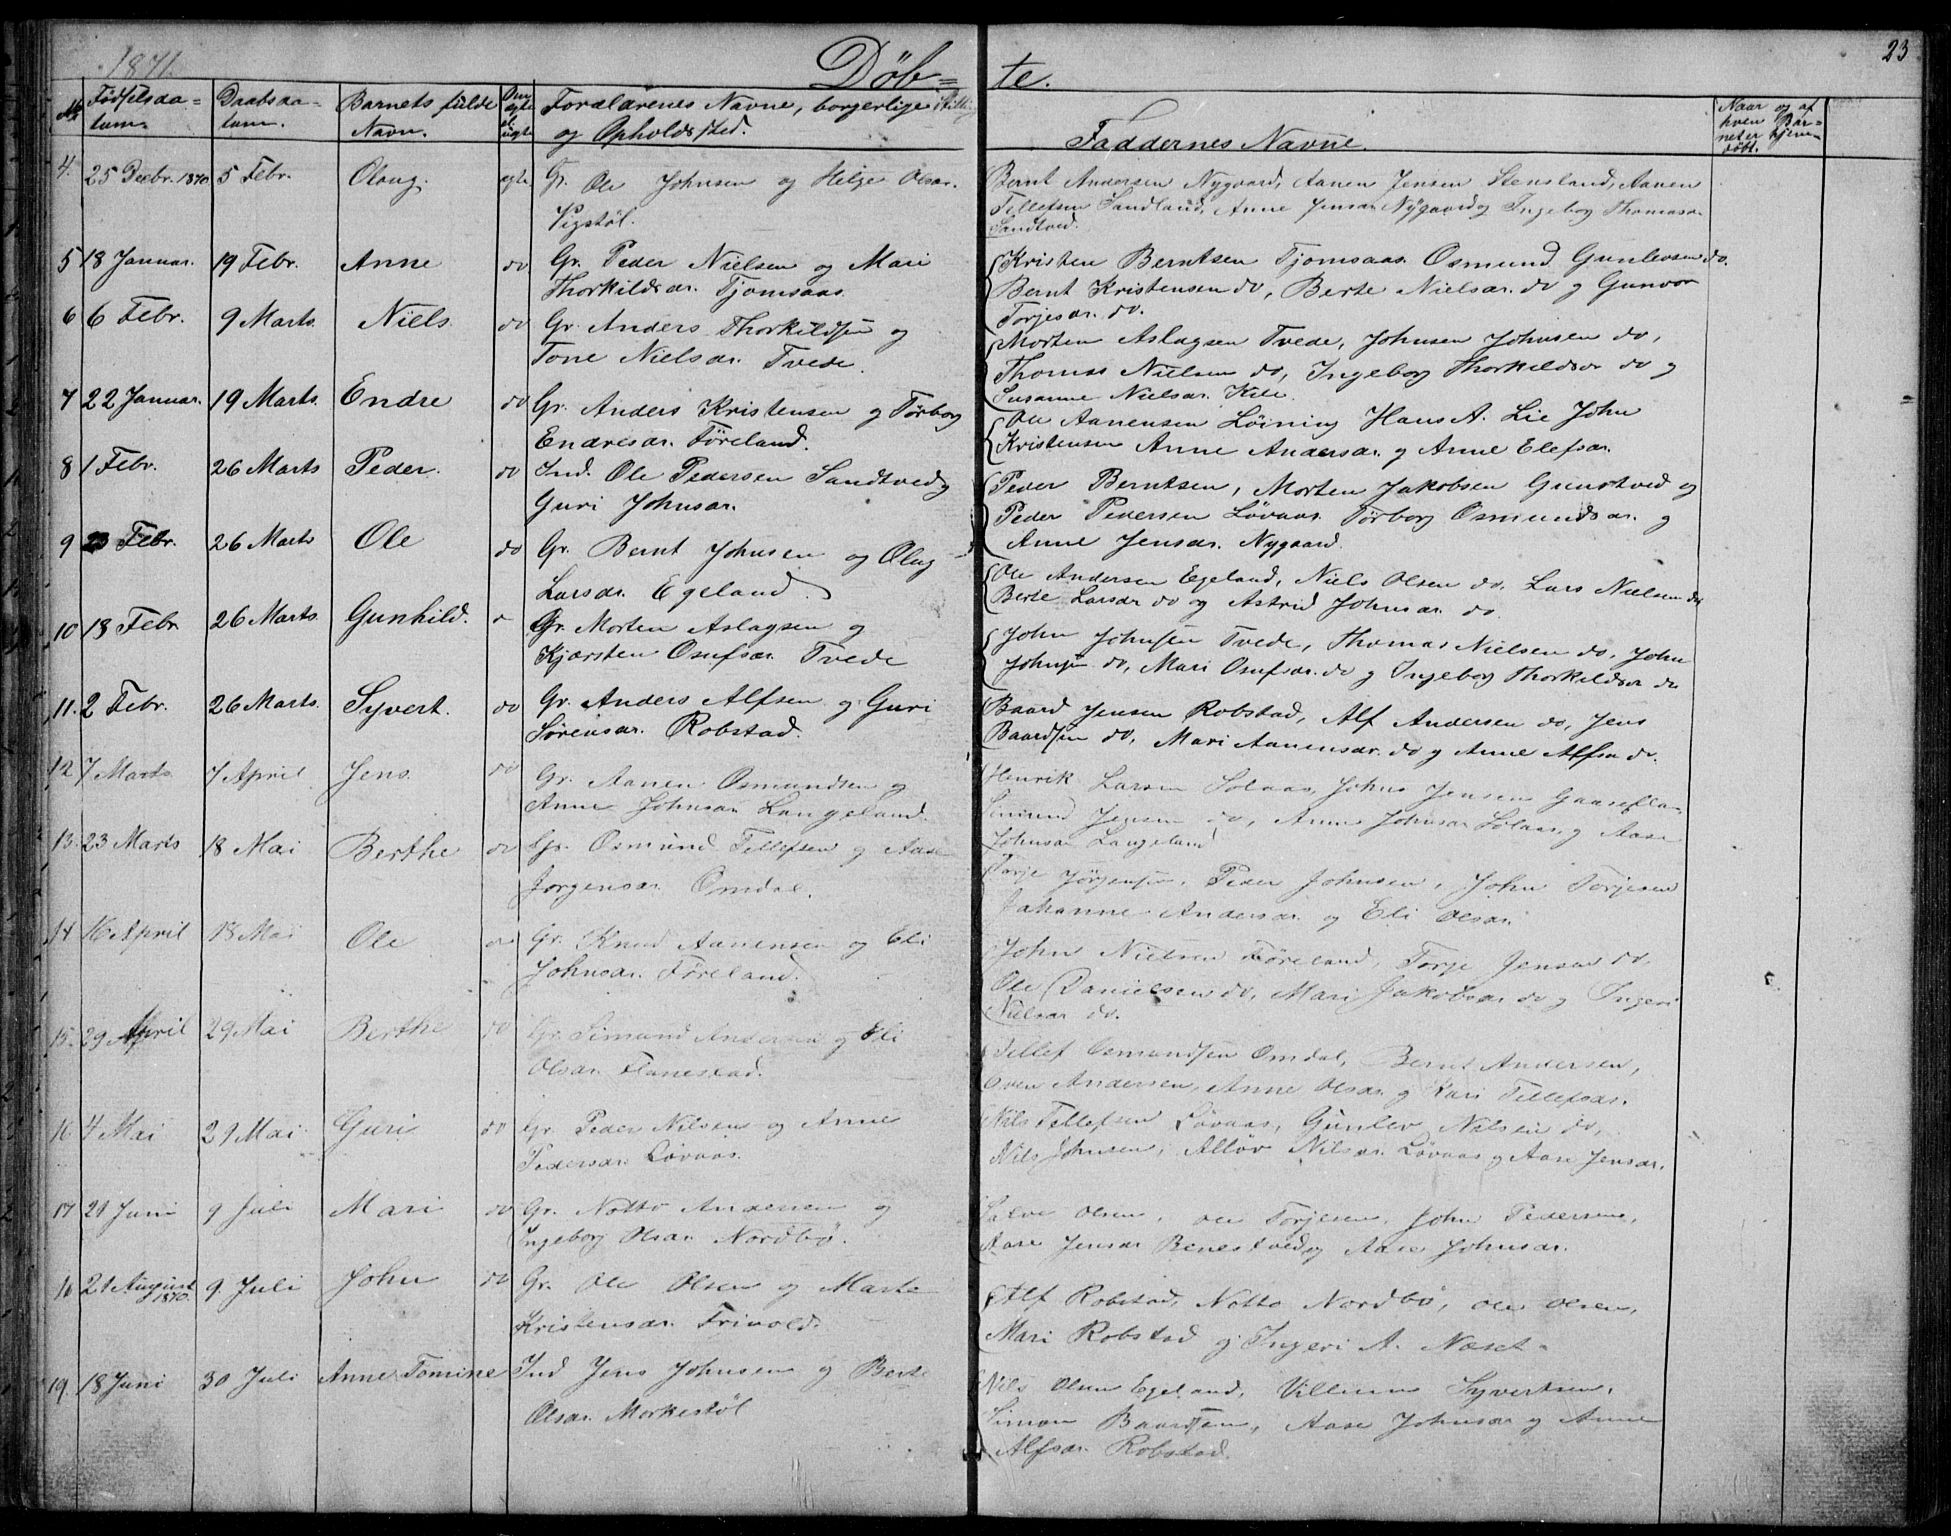 23
1871.
Døb= te.
No
Fødselsda=
tum.
Daabsda=
tum.
Barnets fulde
Navn.
Om
ægte
el.
uægte
Forældrenes Navne, borgerlige Stilling
og Opholdssted.
Faddernes Navne.
Naar og af
hvem Bar=
net er hjem=
døbt.
4. 25 Decbr. 1870 5 Febr. Olaug. egte Gr. Ole Johnsen og Helge Olsdr.
Vigstøl.
Bernt Andersen Nygaard, Aanen Jensen Stensland, Aanen
Tellefsen Sandland, Anne Jensdr Nygaard og Ingeborg Thomasdr
Sandtved.
5 18 Januar. 19 Febr. Anne do Gr. Peder Nielsen og Mari
Thorkildsdr. Tjomsaas
Kristen Berntsen Tjomsaas. Osmund Gunlevsen do.
Bernt Kristensen do, Berte Nielsdr. do og Gunvor
Torjesdr. do.
6 6 Febr. 9 Marts. Niels do Gr. Anders Thorkildsen og
Tone Nielsdr. Tvede.
Morten Aslagsen Tvede, Johnsen Johnsen do,
Thomas Nielsen do, Ingeborg Thorkildsdr do og
Susanne Nielsdr. Kile.
7 22 Januar. 19 Marts. Endre do Gr. Anders Kristensen og Torborg
Endresdr. Føreland.
Ole Aanensen Løining Hans A. Lie John
Kristensen Anne Andersdr. og Anne Elefsdr.
8 1 Febr. 26 Marts Peder. do Ind. Ole Pedersen Sandtved og
Guri Johnsdr.
Peder Berntsen, Morten Jakobsen Grunstved og
Peder Pedersen Løvaas. Torborg Osmundsdr. og
Anne Jensdr. Nygaard.
9 Febr. 26 Marts Ole do Gr. Bernt Johnsen og Olug
Larsdr. Egeland.
Ole Andersen Egeland, Niels Olsen do, Lars Nielsen do
Berte Larsdr do og Astrid Johnsdr. do
10 18 Febr 26 Marts. Gunhild. Gr. Morten Aslagsen og
Kjærsten Osufsdr. Tvede
John Johnsen Tvede, Thomas Nielsen do, John
Johnsen do, Mari Osufsdr. do og Ingeborg Thorkildsdr do
11. 2 Febr. 26 Marts. Syvert. do Gr. Anders Alfsen og Guri
Sørensdr. Robstad.
Baard Jensen Robstad, Alf Andersen do, Jens
Baardsen do, Mari Aanensdr. do og Anne Alfsdr do.
12 7 Marts 7 April Jens. do Gr. Aanen Osmundsen og
Anne Johnsdr Langeland.
Henrik Larsen Solaas, Johns Jensen
Simund Jensen do, Anne Johnsdr Solaas og Aase
Johnsdr Langeland
13. 23 Marts 18 Mai Berthe do Gr. Osmund Tellefsen og Aase
Jorgensdr. Omdal.
Torje Jørgensen, Peder Johnsen, John Torjesen
Johanne Andersdr. og Eli Olsdr.
14 16 April 18 Mai Ole do Gr. Knud Aanensen og Eli
Johnsdr. Føreland.
John Nielsen Føreland, Torje Jensen do,
Ole Danielsen do, Mari Jakobsdr do og Ingeri
Nielsdr do.
15. 29 April 29 Mai Berthe do Gr. Simund Andersen og Eli
Olsdr. Flanestad.
Tellef Osmundsen Omdal, Bernt Andersen,
Sven Andersen, Anne Olsdr. og Kari Tellefsdr.
16 4 Mai 29 Mai Guri do Gr. Peder Nilsen og Anne
Pedersdr. Løvaas.
Nils Tellefsen Løvaas, Gunlev Nilsen do,
Nils Johnsen, Alløv Nilsdr. Løvaas og Aase Jensdr.
17 21 Juni 9 Juli Mari do Gr. Notto Andersen og
Ingeborg Olsdr. Nordbø.
Salve Olsen, Ole Torjesen, John Pedersen,
Aase Jensdr Benestved og Aase Johnsdr.
21 August 1870. 9 Juli John do Gr. Ole Olsen og Marte
Kristensdr. Frivold.
Alf Robstad, Notto Nordbø, Ole Olsen,
Mari Robstad og Ingeri A. Næset.
19. 18 Juni 30 Juli Anne Tomine Ind Jens Johnsen og Berte
Olsdr. Morkestøl
Nils Olsen Egeland, Villum Syvertsen,
Simon Baardsen, Aase Johnsdr og Anne
Alfsdr. Robstad.